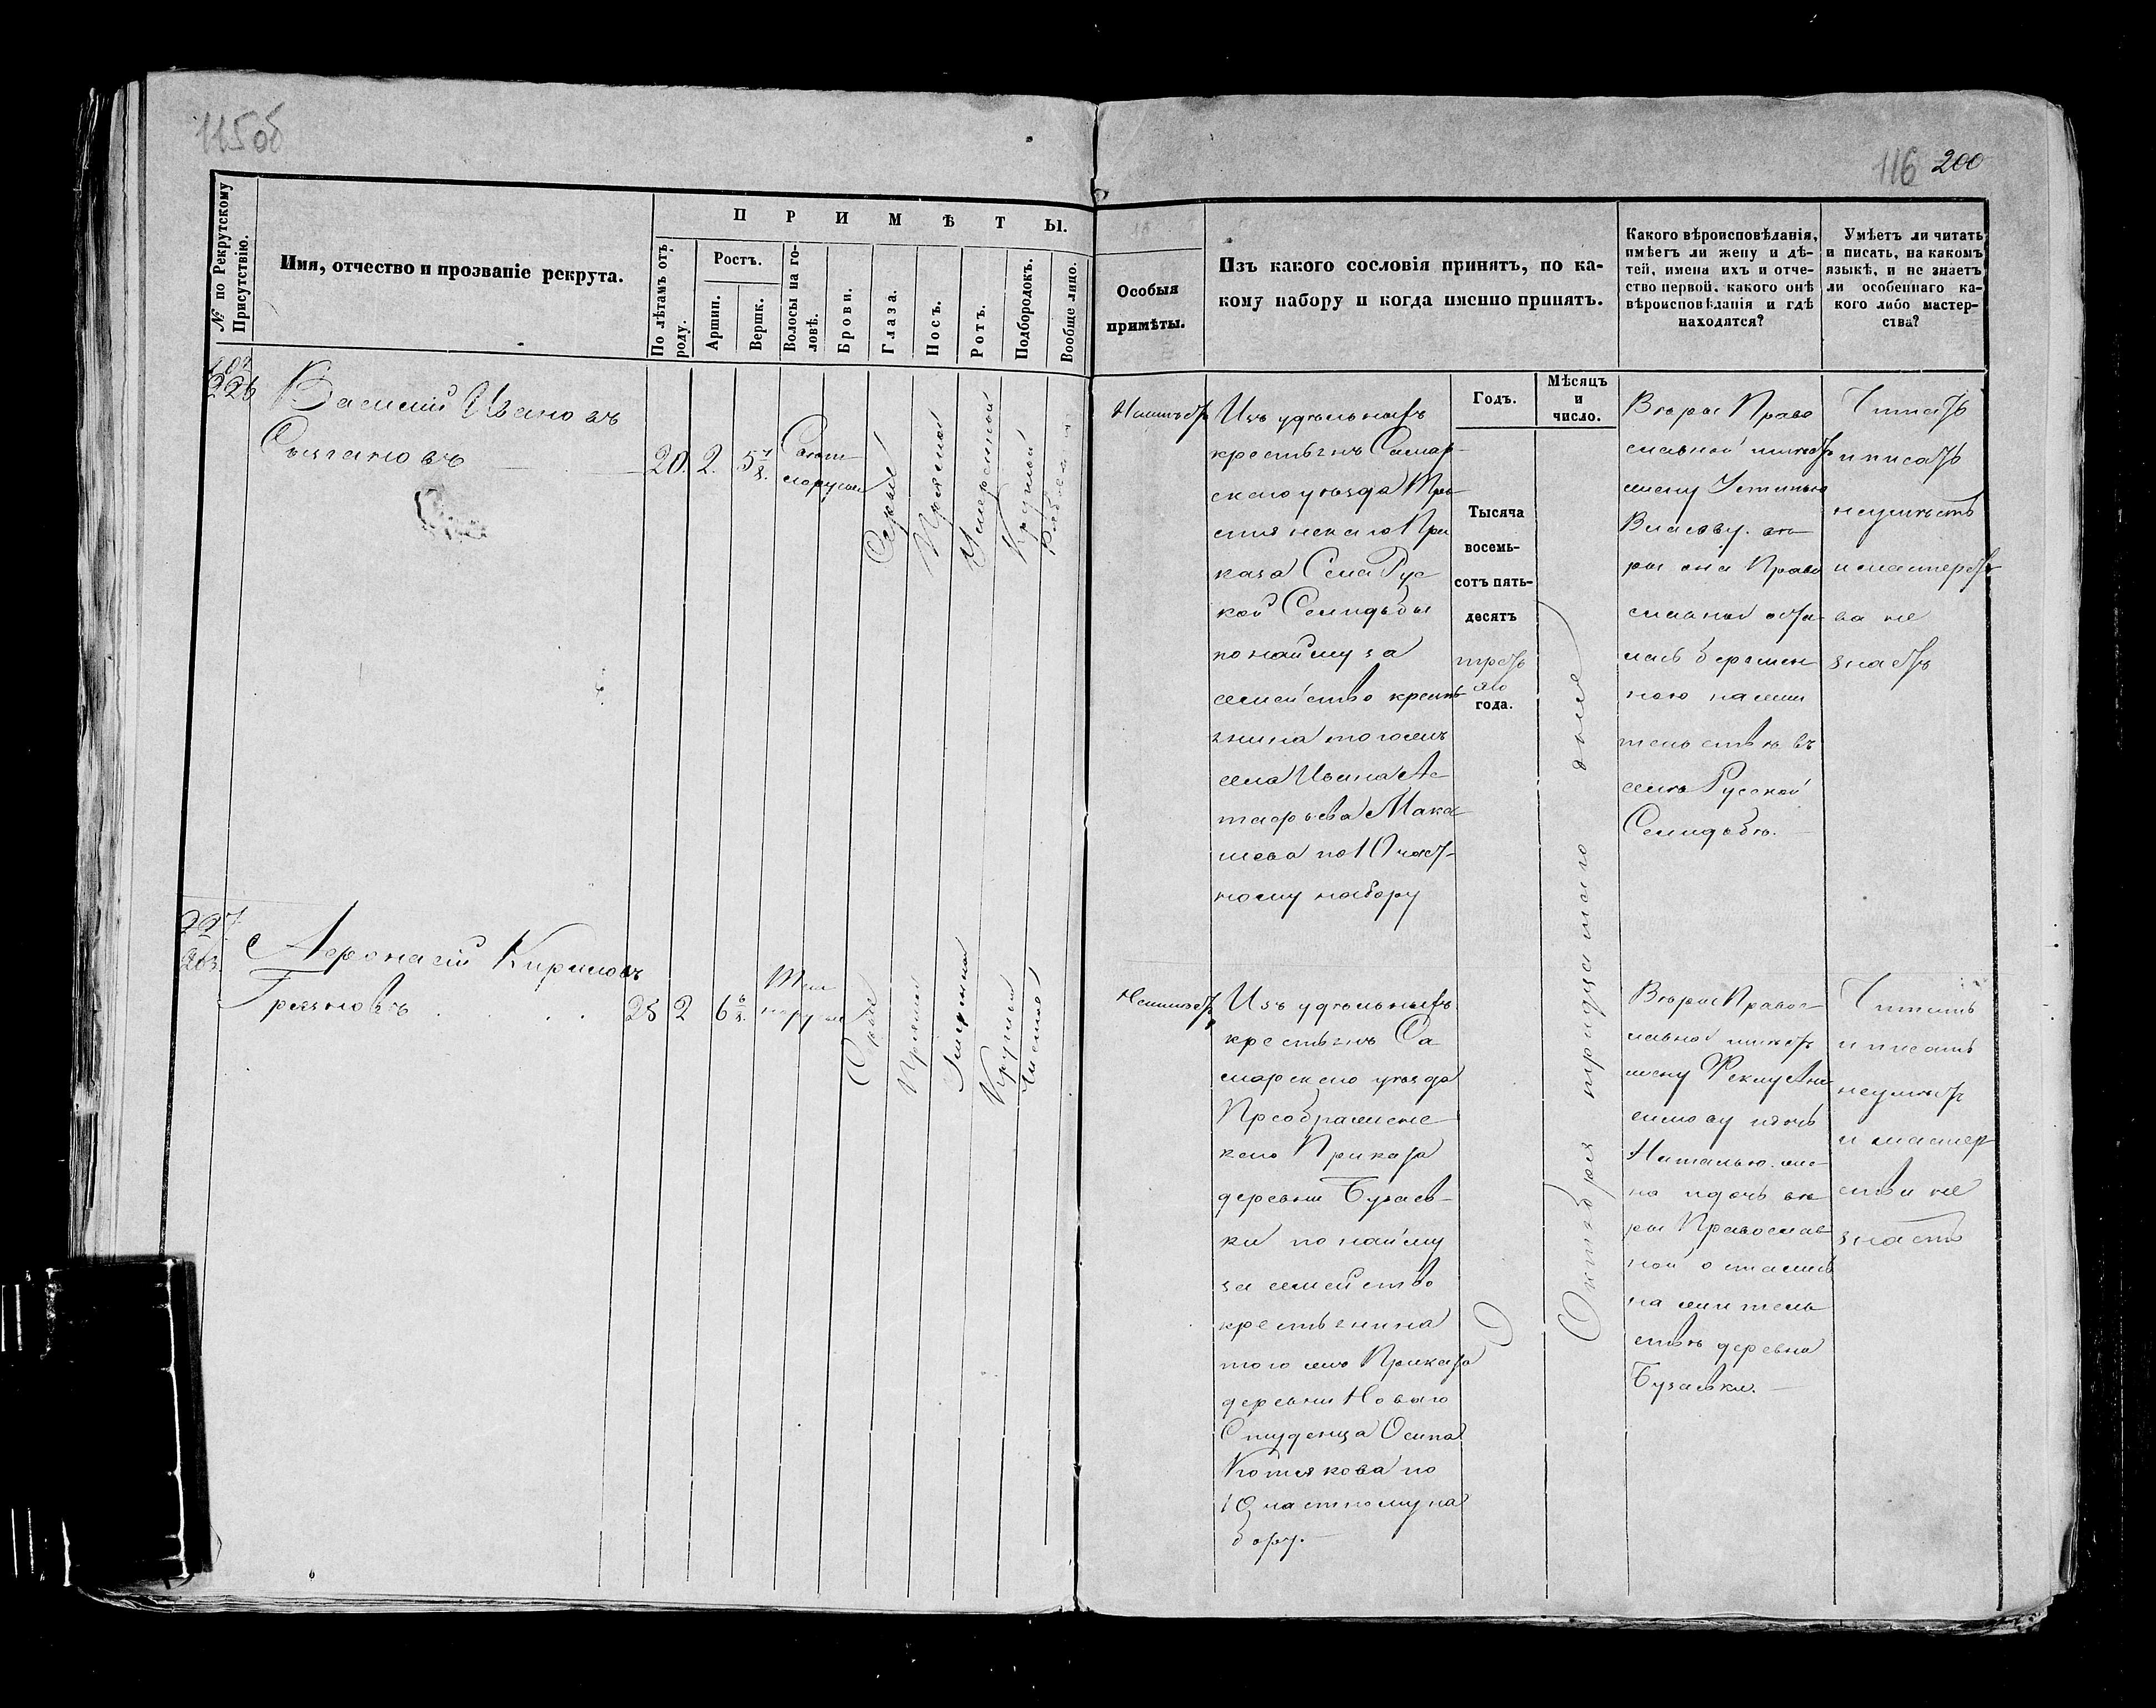 115об
116 200
№ по Рекрутскому Присутствію.
Имя, отчество и прозваніе рекрута.
ПРИМѢТЫ.
По лѣтамъ отъ роду.
Ростъ.
Аршин.
Вершк.
Волосы на головѣ.
Брови.
Глаза.
Носъ.
Ротъ.
Подбородокъ.
Вообще лицо.
Особыя
примѣты.
Изъ какого сословія принятъ, по ка-
кому набору и когда именно принятъ.
Какого вѣроисповѣданія,
имѣетъ ли жену и дѣ-
тей, имена ихъ и отче-
ство первой, какого онѣ
вѣроисповѣданія и гдѣ
находятся?
Умѣетъ ли читать
и писать, на какомъ
языкѣ, и не знаетъ
ли особеннаго ка-
кого либо мастер-
ства?
Годъ.
Мѣсяцъ
и
число.
226
Василій Ивановъ
20. 2. 5 7/8.
Свѣт
лорусые
Серые
Прямой
Умеренной
Круглый
Неимѣетъ
Изъ удѣльныхъ
крестьянъ Самар-
скаго уѣзда
При
каза Села Рус
кой Селидьбы
по найму за
семейство кресть
янина тогожъ
села Ивана Ас
тафьева Мака
шева по 10 част-
ному набору
Тысяча
восемь-
сотъ пять-
десятъ
треть
яго
года.
Октября тридцатаго дня
Вѣры Право
славной имѣетъ
жену Устинью
Власову. вѣ
ры она Право
славной оста
лась беремен
ною на жи
тельствѣ въ
селѣ Русской
Селидьбѣ.
Читать
и писать
неумѣетъ
и мастерст
ва не
знаетъ
227
263.
Афонасій Кириловъ
Грязновъ
25 2 6 6/8.
Тем
норусые
Серые
Прямой
Умеренной
Круглый
Чистое
Неимѣетъ
Изъ удѣльныхъ
крестьянъ Са
марскаго уѣзда
Преображенс
каго Приказа
деревни Бузаев-
ки по найму
за семейство
крестьянина
того же Приказа
деревни Новаго
Студенца Осипа
Котякова по
10 частному на
бору.
Вѣры Правос-
лавной имѣетъ
жену Феклу Ани
симову дочь
Наталью. же-
на и дочь вѣ
ры Православ
ной остались
на житель
ствѣ деревнѣ
Бузаевки.
Читать
и писать
неумѣетъ
и мастер
ства не
знаетъ